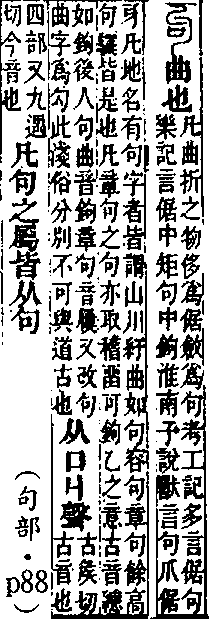 句曲也
凡曲折之物侈爲倨斂爲句考工記多言倨句
樂記言倨中矩句中鉤淮南子說獸言句爪倨
牙凡地名有句字者皆謂山川紆曲如句容句章句餘高
句驪皆是也凡章句之句亦取稽畱可鉤乙之意古音緫
如鉤後人句曲音鉤章句音屨又改句
曲字爲勾此淺俗分別不可與道古也
从口丩聲
古矦切
古音也
四部又九遇
切今音也
凡句之屬皆从句
（句部・p88）